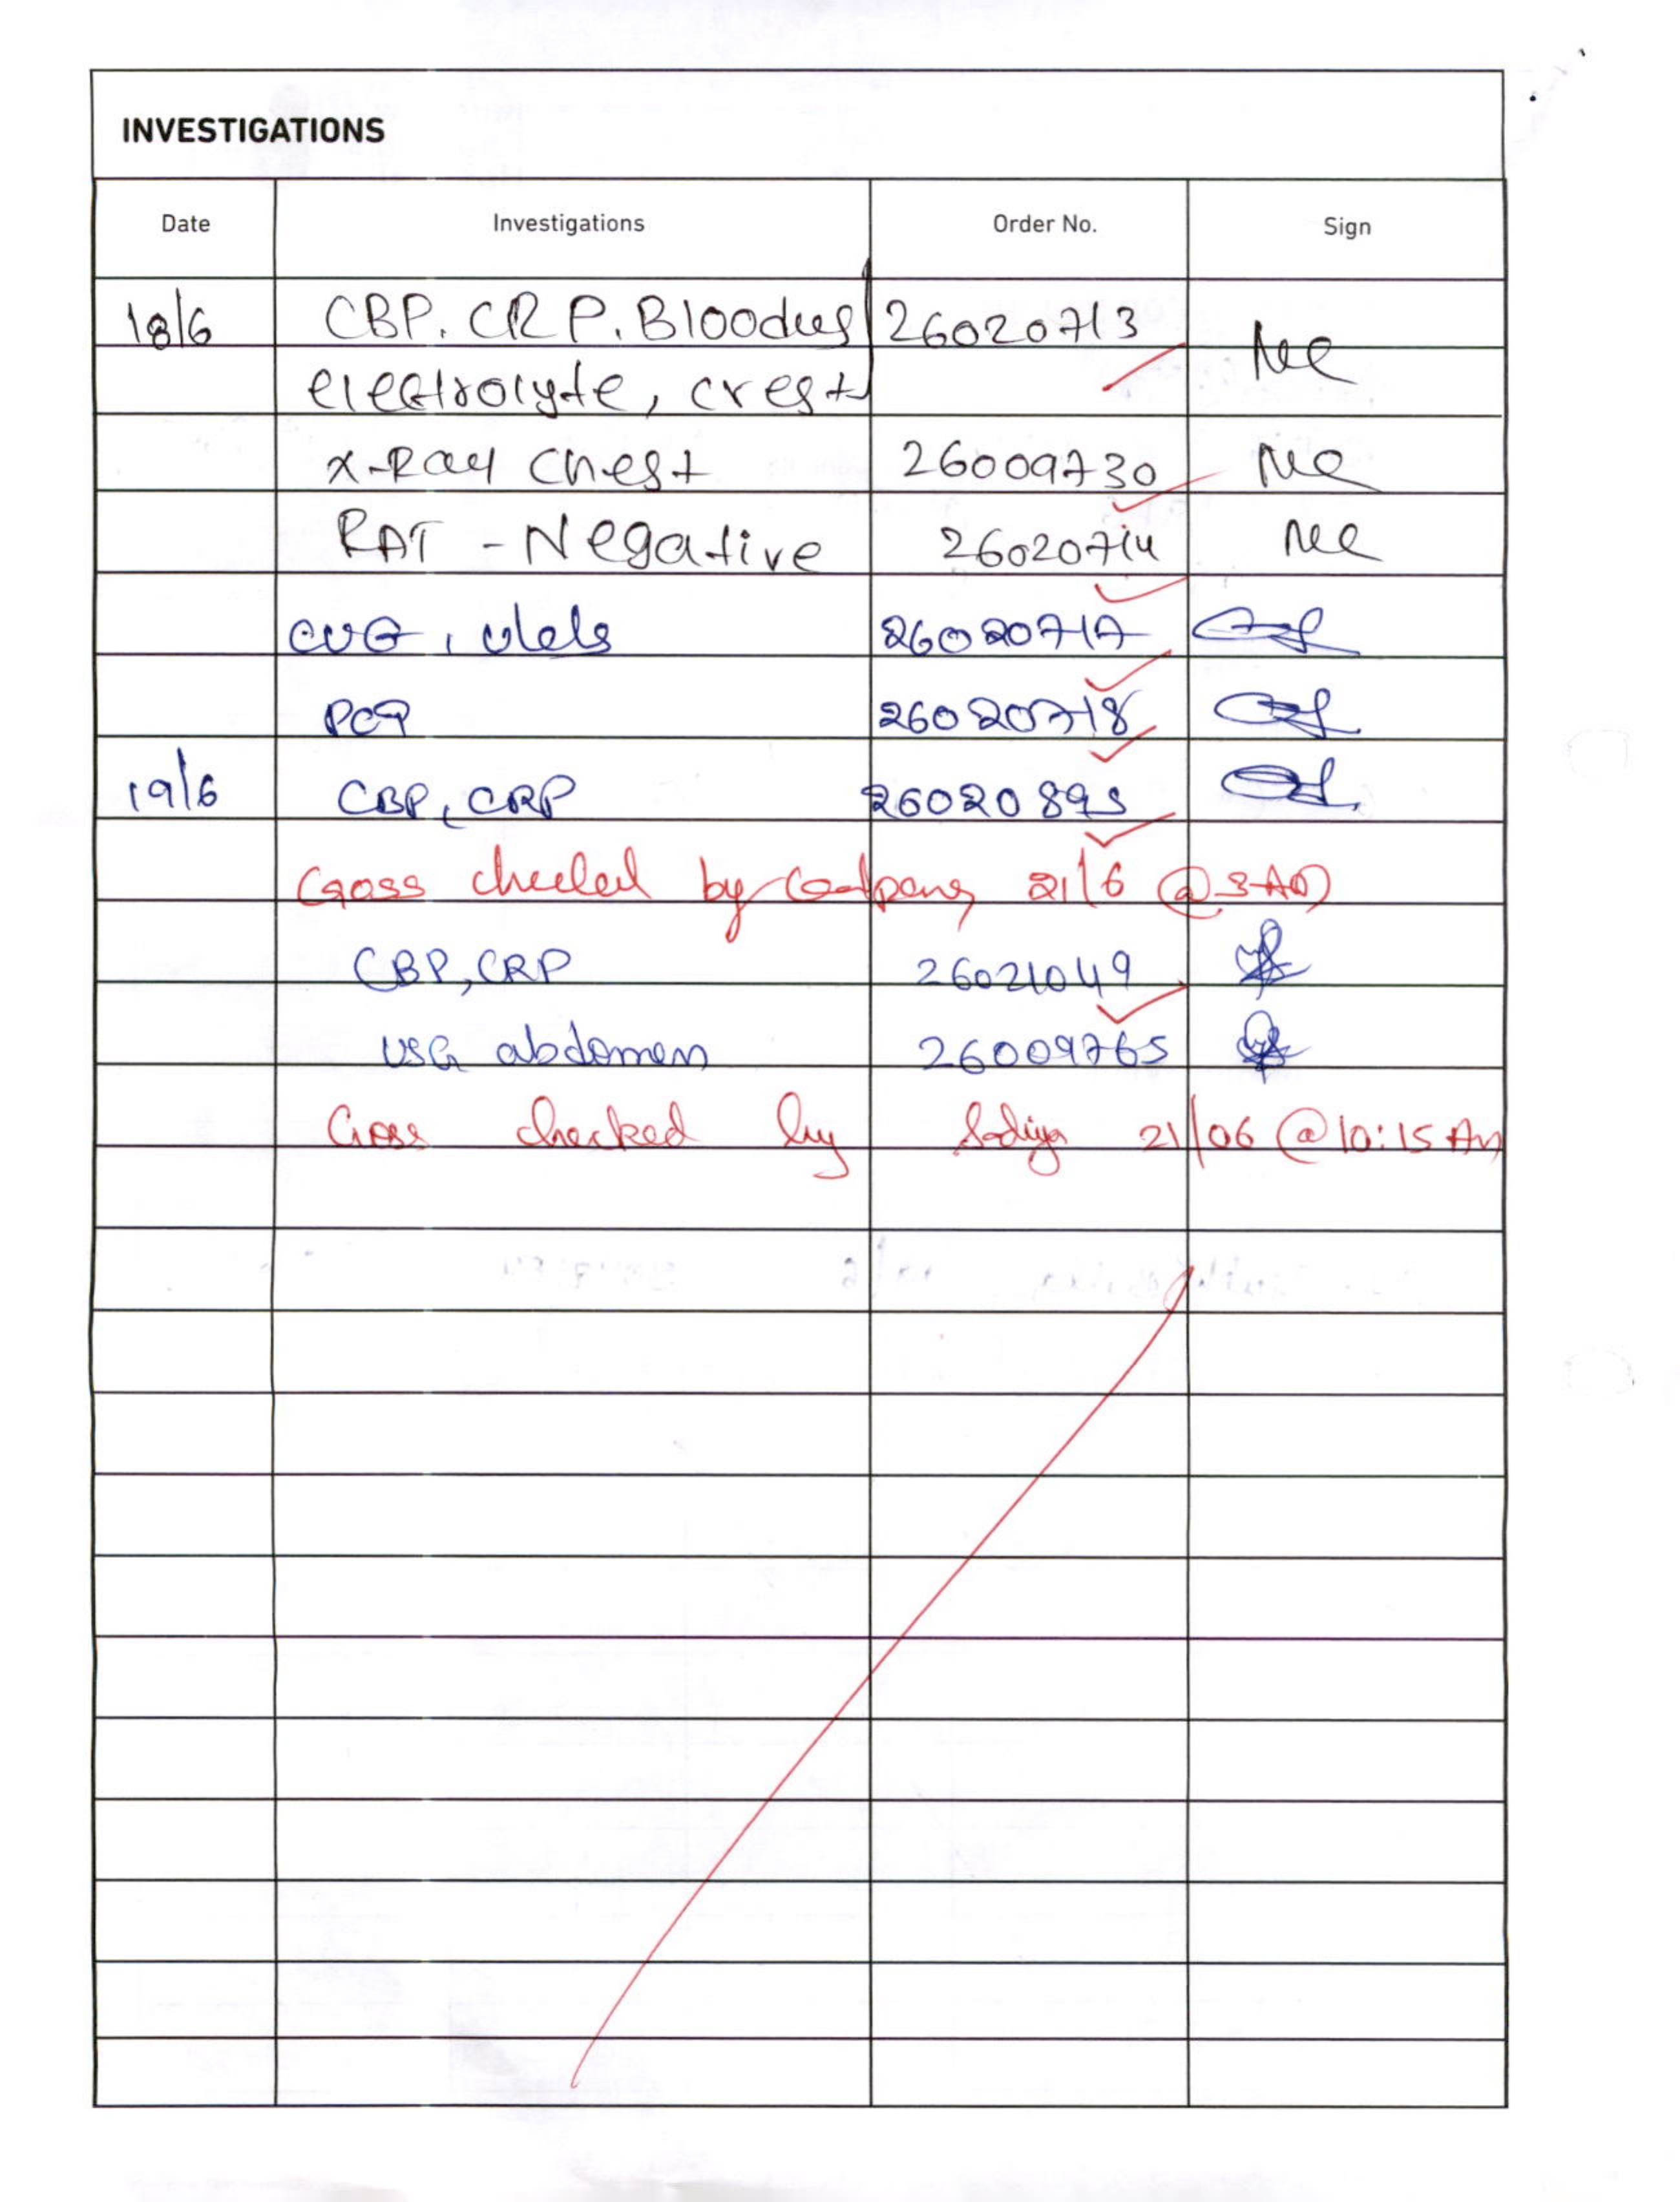 INVESTIGATIONS
Date Investigations Order No. Sign
18/6 CBP. CRP. Blood 26020713
electrolyte, creat
X-Ray Chest 26009730
RAT - Negative 26020714
26020717
PCT 26020718
19/6 CBP, CRP 26020895
Cross checked by 21/6 @
CBP, CRP 26021049
USG abdomen 26009765
Cross checked by Sadiya 21/06 @ 10:15 Am